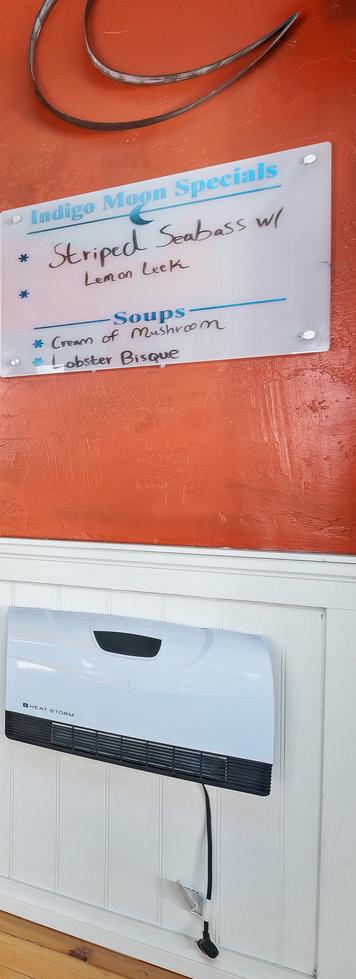 Indigo Moon Specials
* Striped Seabass w/
Lemon Leek
*
Soups
* Cream of Mushroom
* Lobster Bisque
HEAT STORM